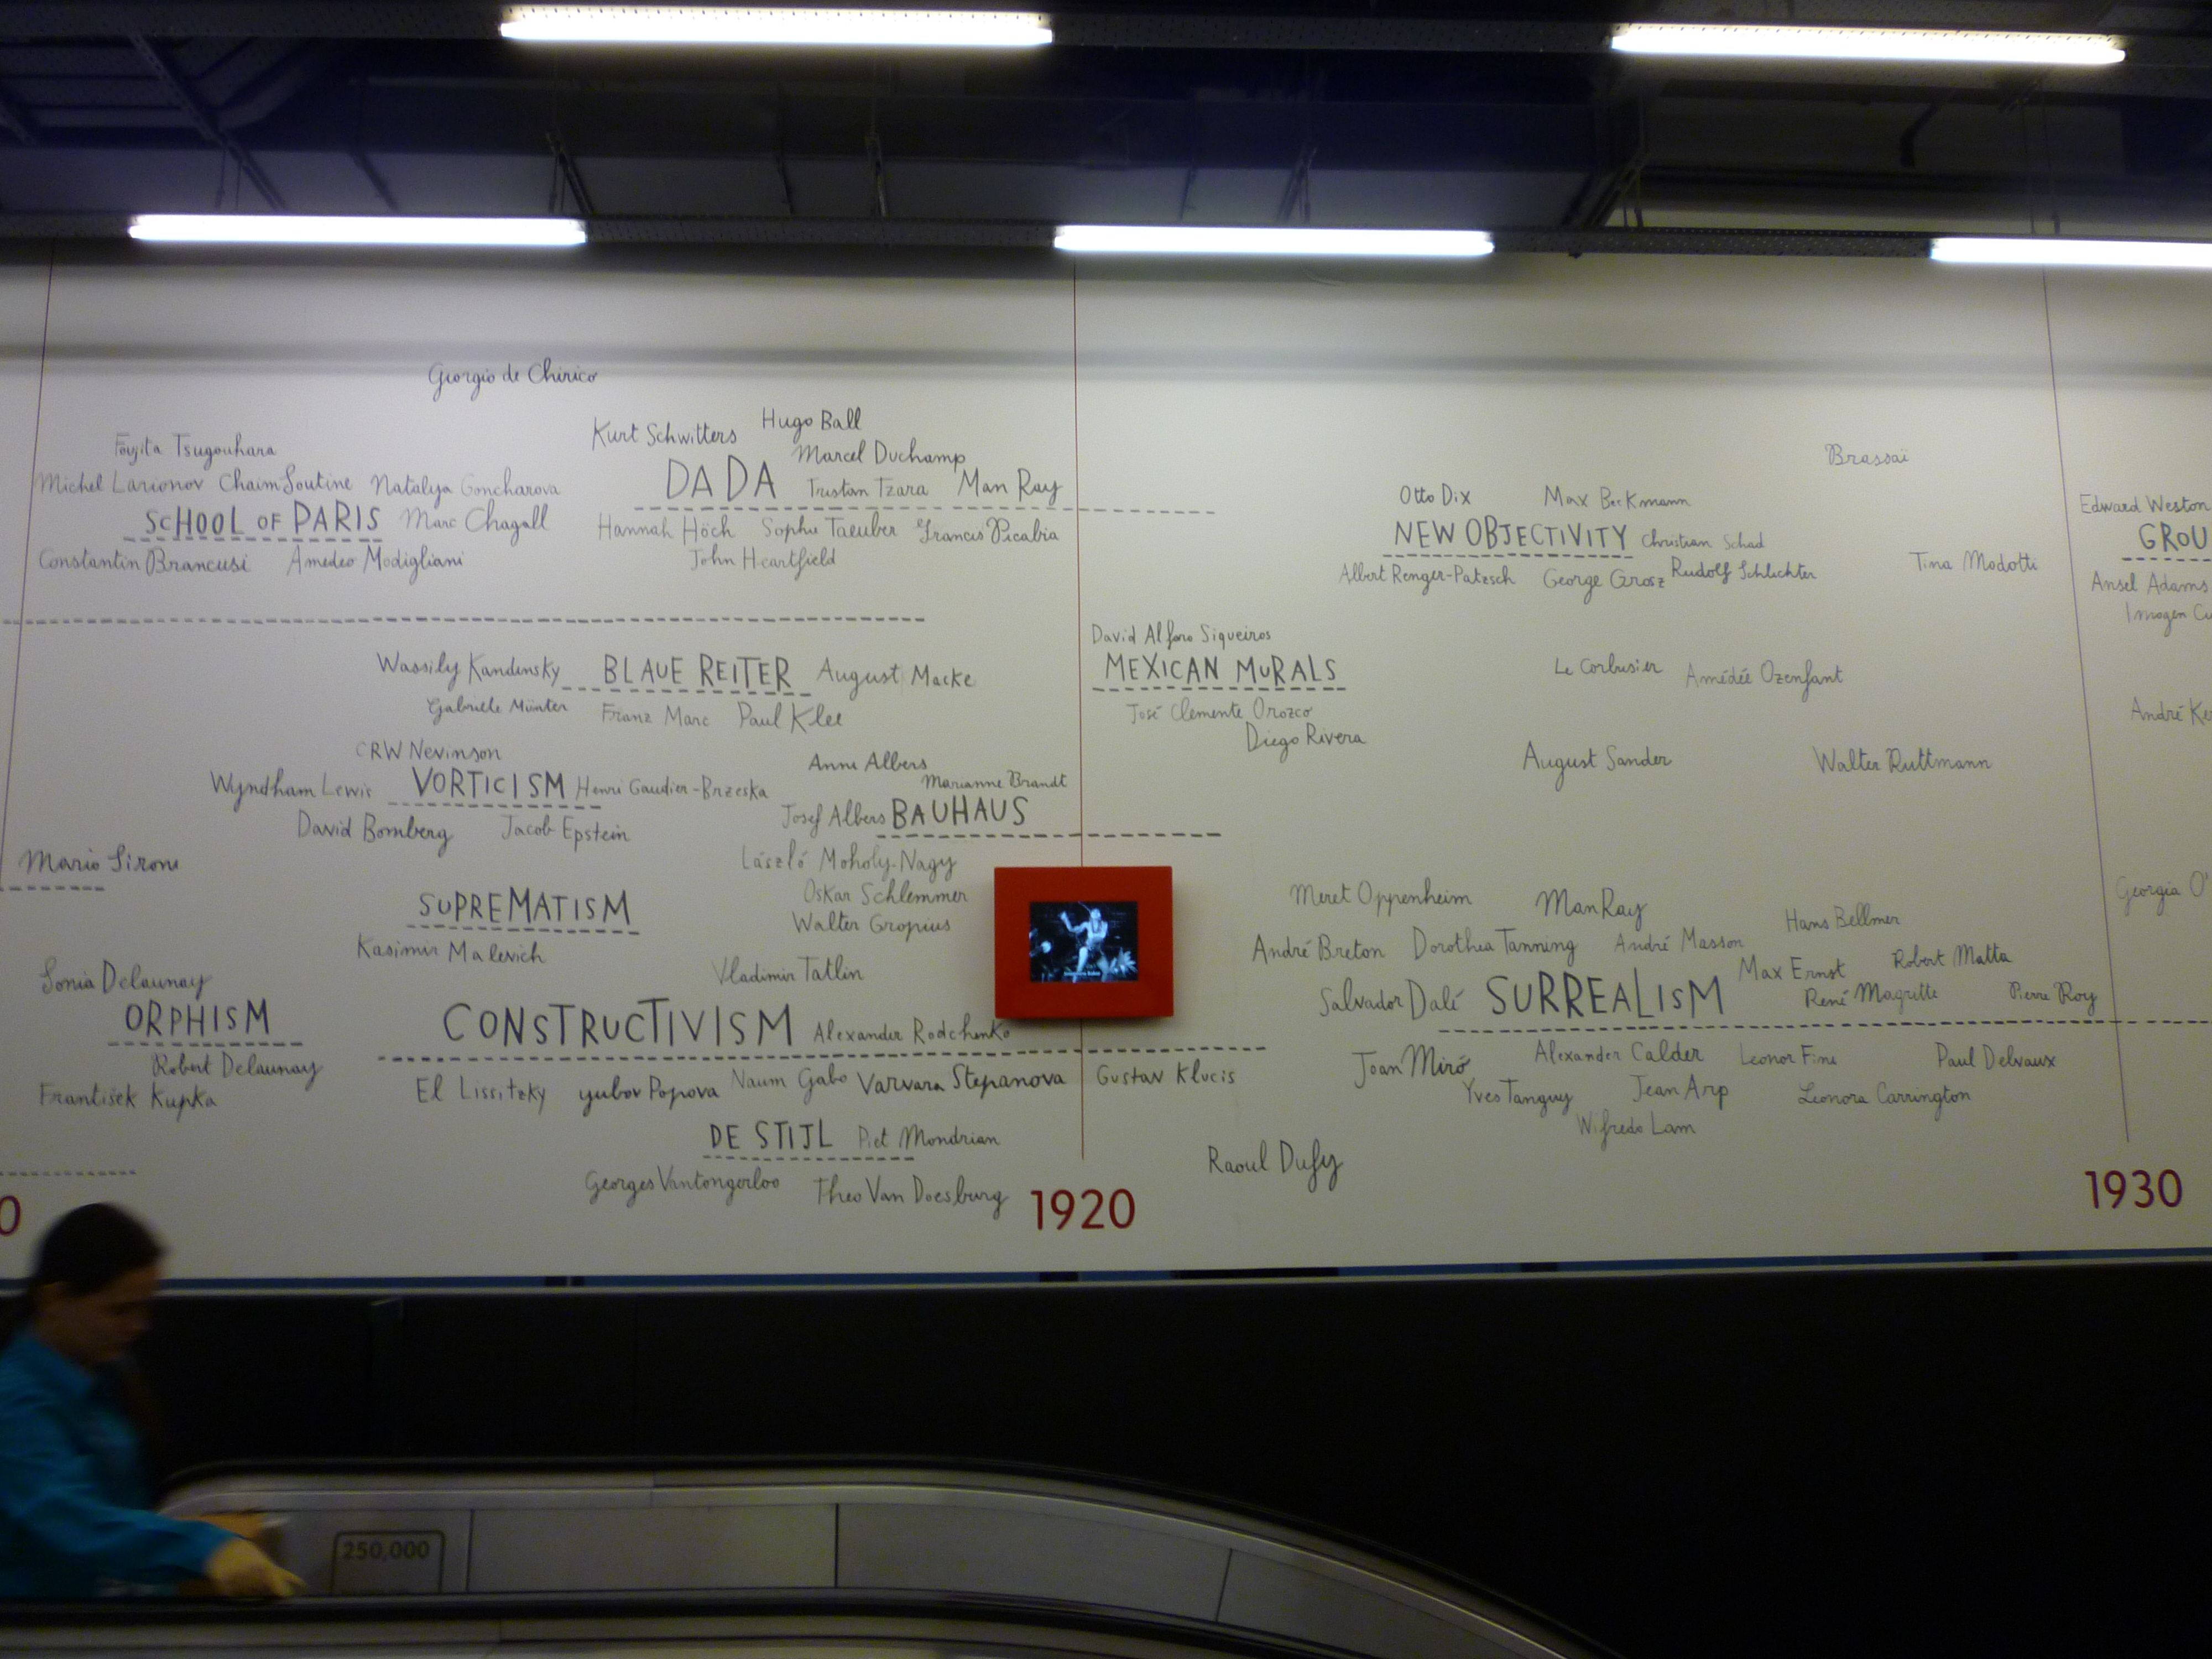 Giorgio de Chirico
Foujita Tsugouhara
Michel Larionov Chaim Soutine Natalya Goncharova
SCHOOL OF PARIS Marc Chagall
Constantin Brancusi Amedeo Modigliani
Kurt Schwitters Hugo Ball
Marcel Duchamp
DADA Tristan Tzara Man Ray
Hannah Höch Sophie Taeuber Francis Picabia
John Heartfield
Brassaï
Otto Dix Max Beckmann
NEW OBJECTIVITY Christian Schad
Albert Renger-Patzsch George Grosz Rudolf Schlichter
Tina Modotti
Edward Weston
GROU
Ansel Adams
Imogen Cu
Wassily Kandinsky BLAUE REITER August Macke
Gabriele Münter Franz Marc Paul Klee
David Alfaro Siqueiros
MEXICAN MURALS
José Clemente Orozco
Diego Rivera
Le Corbusier Amédée Ozenfant
André Ke
August Sander Walter Ruttmann
CRW Nevinson
Wyndham Lewis VORTICISM Henri Gaudier-Brzeska
David Bomberg Jacob Epstein
Anni Albers
Marianne Brandt
Josef Albers BAUHAUS
László Moholy-Nagy
Oskar Schlemmer
Walter Gropius
Mario Sironi
SUPREMATISM
Kasimir Malevich
Sonia Delaunay
ORPHISM
Robert Delaunay
František Kupka
Vladimir Tatlin
CONSTRUCTIVISM Alexander Rodchenko
El Lissitzky yubov Popova Naum Gabo Varvara Stepanova Gustav Klucis
DE STIJL Piet Mondrian
Georges Vantongerloo Theo Van Doesburg
Meret Oppenheim Man Ray Hans Bellmer
André Breton Dorothea Tanning André Masson
Max Ernst Robert Matta
Salvador Dalí SURREALISM René Magritte Pierre Roy
Joan Miró Alexander Calder Leonor Fini Paul Delvaux
Yves Tanguy Jean Arp Leonora Carrington
Wifredo Lam
Georgia O'
Raoul Dufy
0 1920 1930
250,000